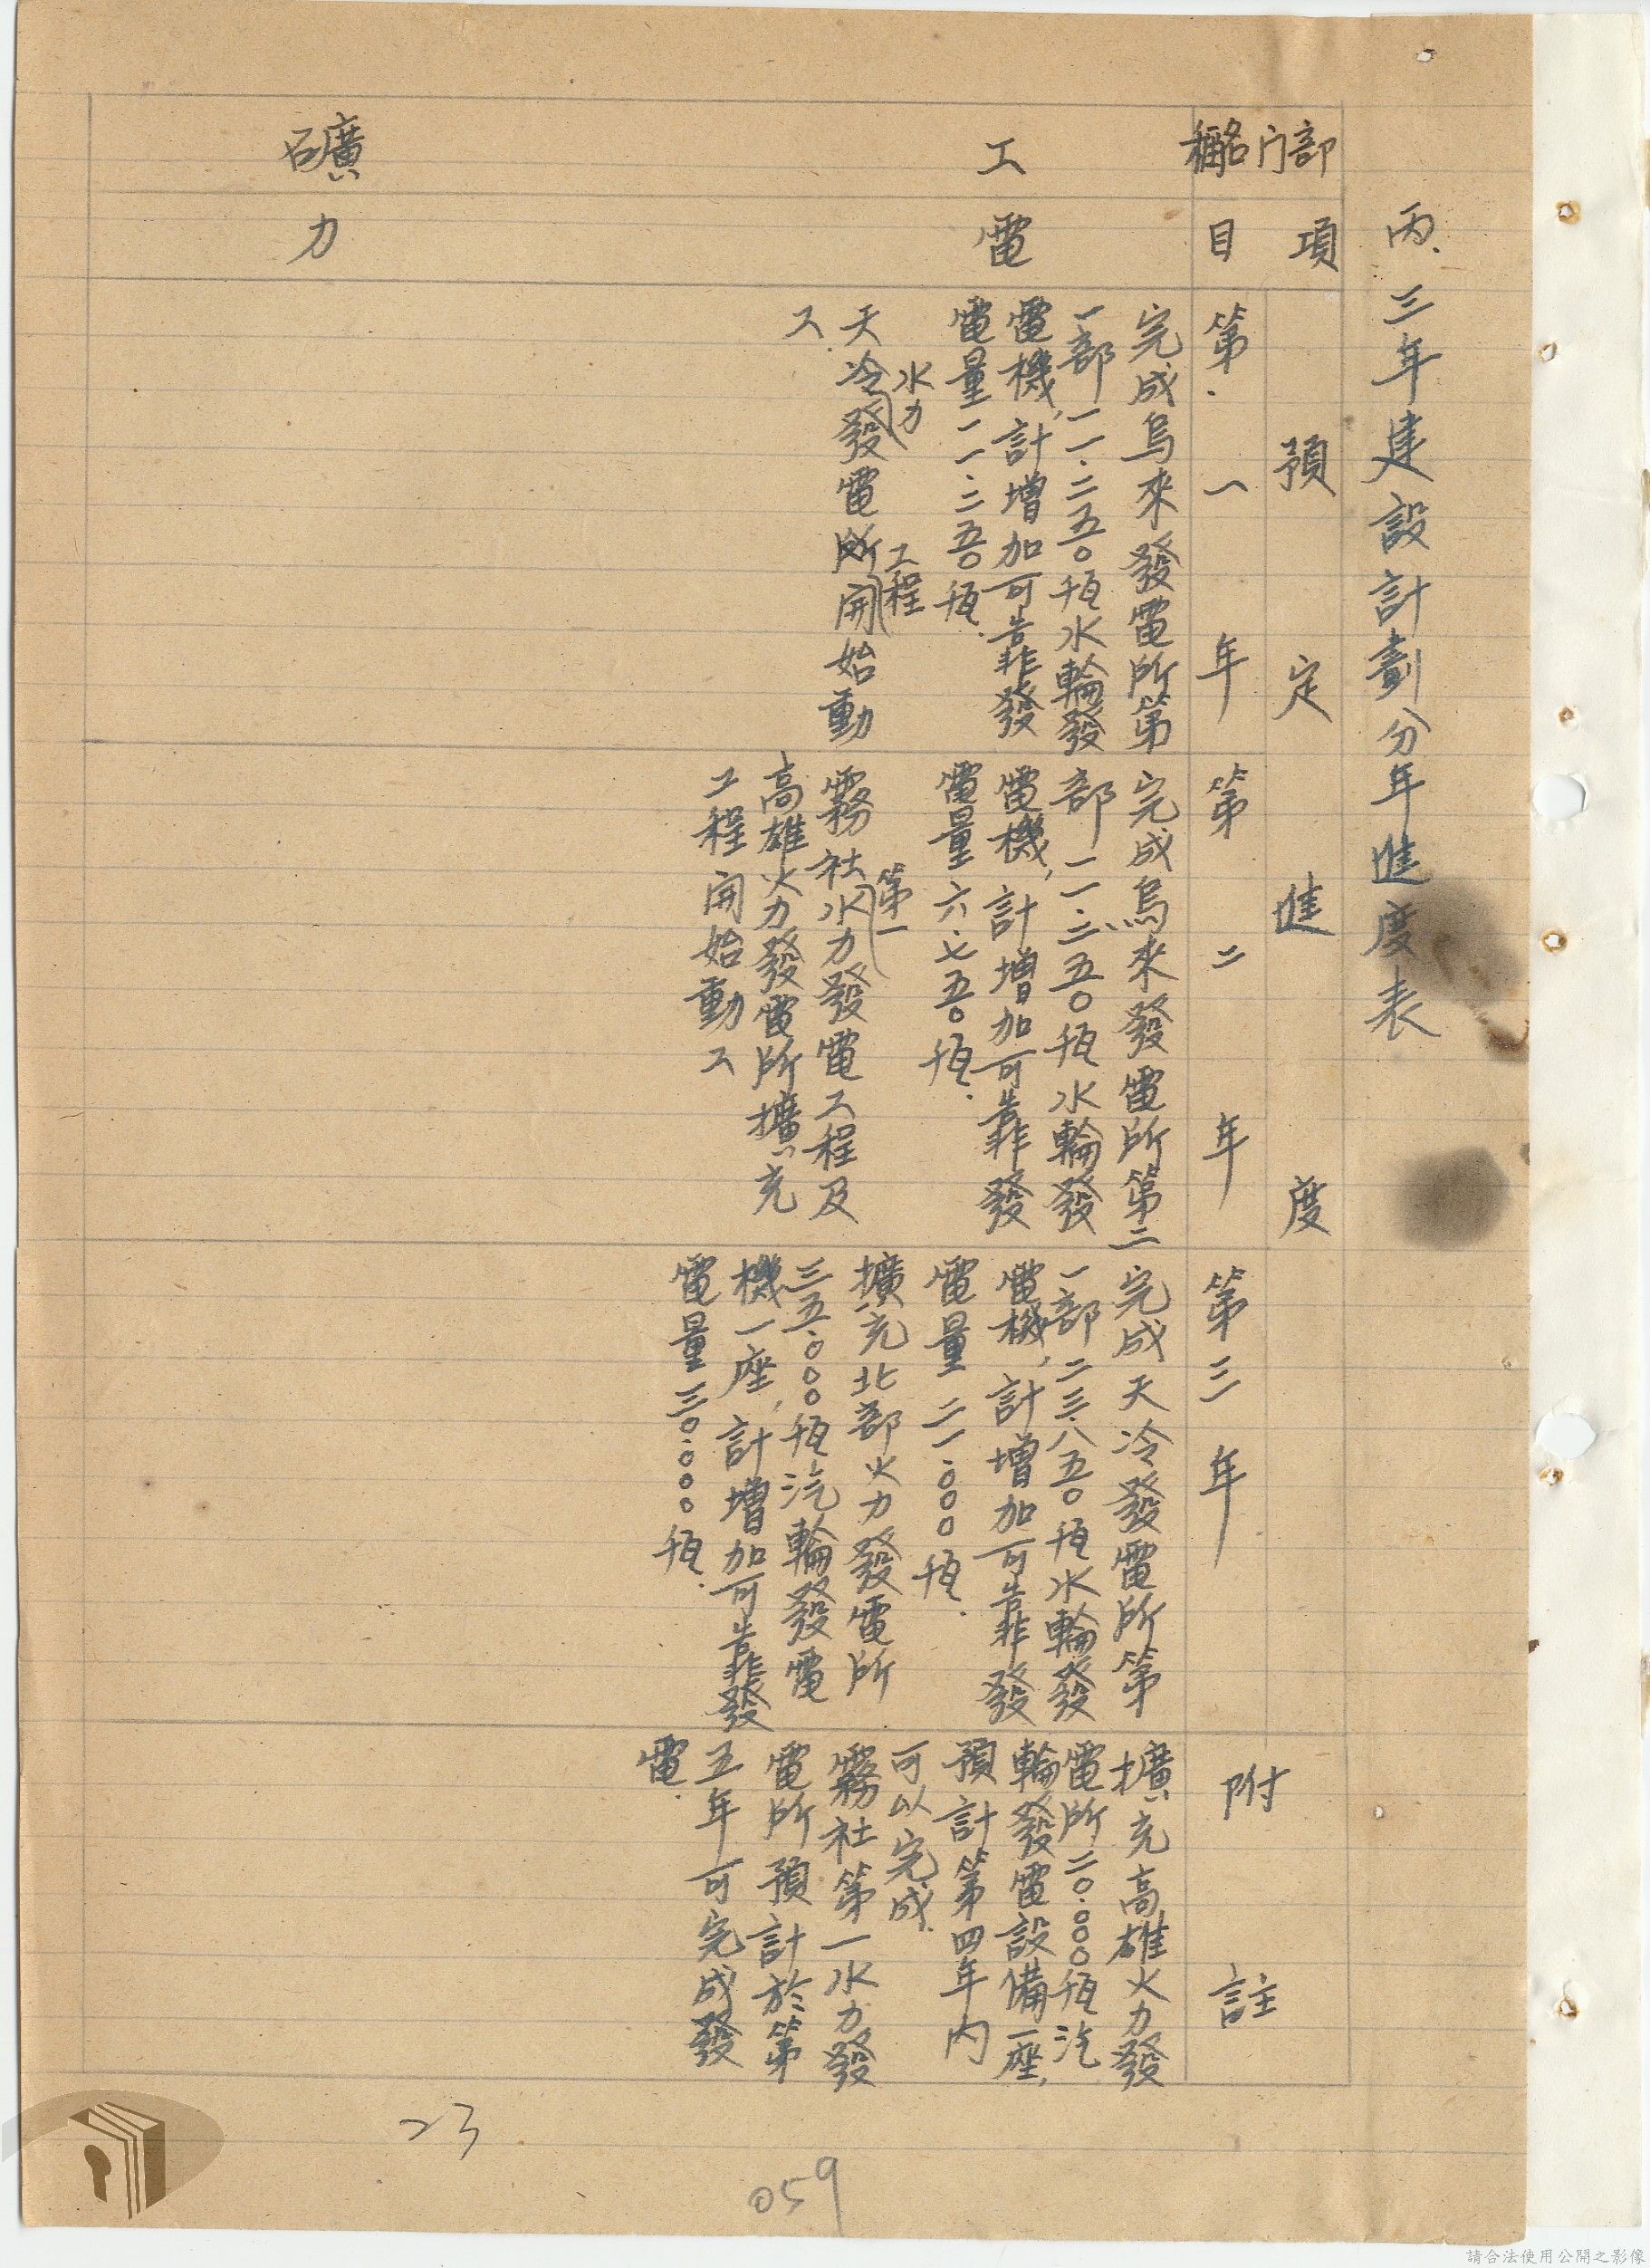 丙．三年建設計劃分年進度表
部门名稱
項目
預定進度
第一年
第二年
第三年
附註
工礦
電力
完成烏來發電所第
一部一一．二五〇瓩水輪發
電機，計增加可靠發
電量一一．二五〇瓩．
水力 工程
天冷發電所開始動
工．
完成烏來發電所第二
部一一．二五〇瓩水輪發
電機，計增加可靠發
電量六．七五〇瓩．
第一
霧社水力發電工程及
高雄火力發電所擴充
工程開始動工
完成天冷發電所第
一部二三．八五〇瓩水輪發
電機，計增加可靠發
電量二一．〇〇〇瓩．
擴充北部火力發電所
三五．〇〇〇瓩汽輪發電
機一座，計增加可靠發
電量三〇．〇〇〇瓩．
擴充高雄火力發
電所二〇．〇〇〇瓩汽
輪發電設備一座，
預計第四年內
可以完成．
霧社第一水力發
電所預計於第
五年可完成發
電．
23
059
請合法使用公開之影像